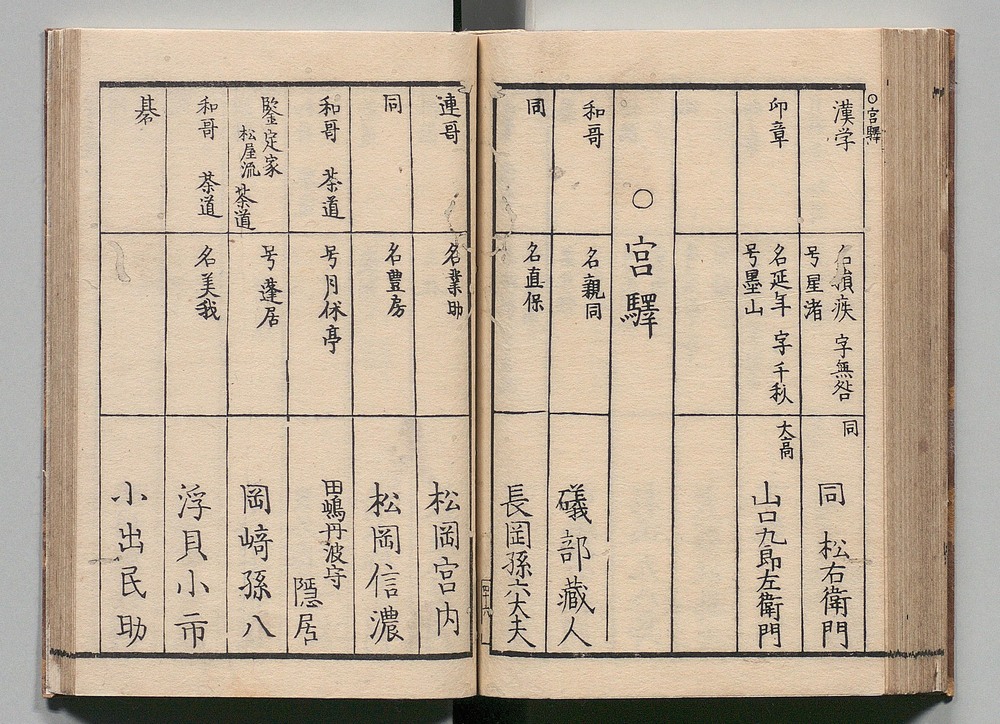 ○宮驛
漢学
名績疾 字無咎
号星渚
同
同 松右衛門
印章
名延年 字千秋
号墨山
大高
山口九郎左衛門
○宮驛
和哥
名親同
礒部藏人
同
名直保
長岡孫六大夫
連哥
名業助
松岡宮内
同
名豊房
松岡信濃
和哥 茶道
号月休亭
田嶋丹波守
隠居
鑒定家
松屋流 茶道
号蓬居
岡﨑孫八
和哥 茶道
名美我
浮貝小市
碁
小出民助